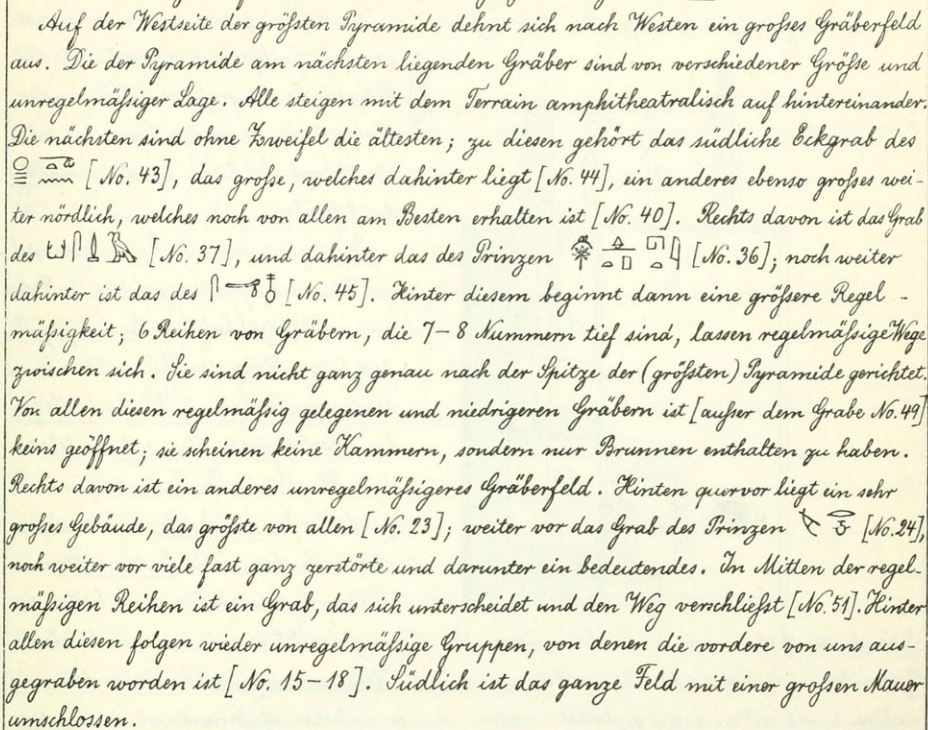 Auf der Westseite der größten Pyramide dehnt sich nach Westen ein großes Gräberfeld
aus. Die der Pyramide am nächsten liegenden Gräber sind von verschiedener Größe und
unregelmäßiger Lage. Alle steigen mit dem Terrain amphitheatralisch auf hintereinander.
Die nächsten sind ohne Zweifel die ältesten; zu diesen gehört das südliche Eckgrab des
[No. 43], das große, welches dahinter liegt [No. 44], ein anderes ebenso großes wei-
ter nördlich, welches noch von allen am Besten erhalten ist [No. 40]. Rechts davon ist das Grab
des [No. 37], und dahinter das des Prinzen [No. 36]; noch weiter
dahinter ist das des [No. 45]. Hinter diesem beginnt dann eine größere Regel-
mäßigkeit; 6 Reihen von Gräbern, die 7–8 Nummern tief sind, lassen regelmäßige Wege
zwischen sich. Sie sind nicht ganz genau nach der Spitze der (größten) Pyramide gerichtet.
Von allen diesen regelmäßig gelegenen und niedrigeren Gräbern ist [außer dem Grabe No. 49]
keins geöffnet; sie scheinen keine Kammern, sondern nur Brunnen enthalten zu haben.
Rechts davon ist ein anderes unregelmäßigeres Gräberfeld. Hinten quervor liegt ein sehr
großes Gebäude, das größte von allen [No. 23]; weiter vor das Grab des Prinzen [No. 24],
noch weiter vor viele fast ganz zerstörte und darunter ein bedeutendes. In Mitten der regel-
mäßigen Reihen ist ein Grab, das sich unterscheidet und den Weg verschließt [No. 51]. Hinter
allen diesen folgen wieder unregelmäßige Gruppen, von denen die vordere von uns aus-
gegraben worden ist [No. 15–18]. Südlich ist das ganze Feld mit einer großen Mauer
umschlossen.